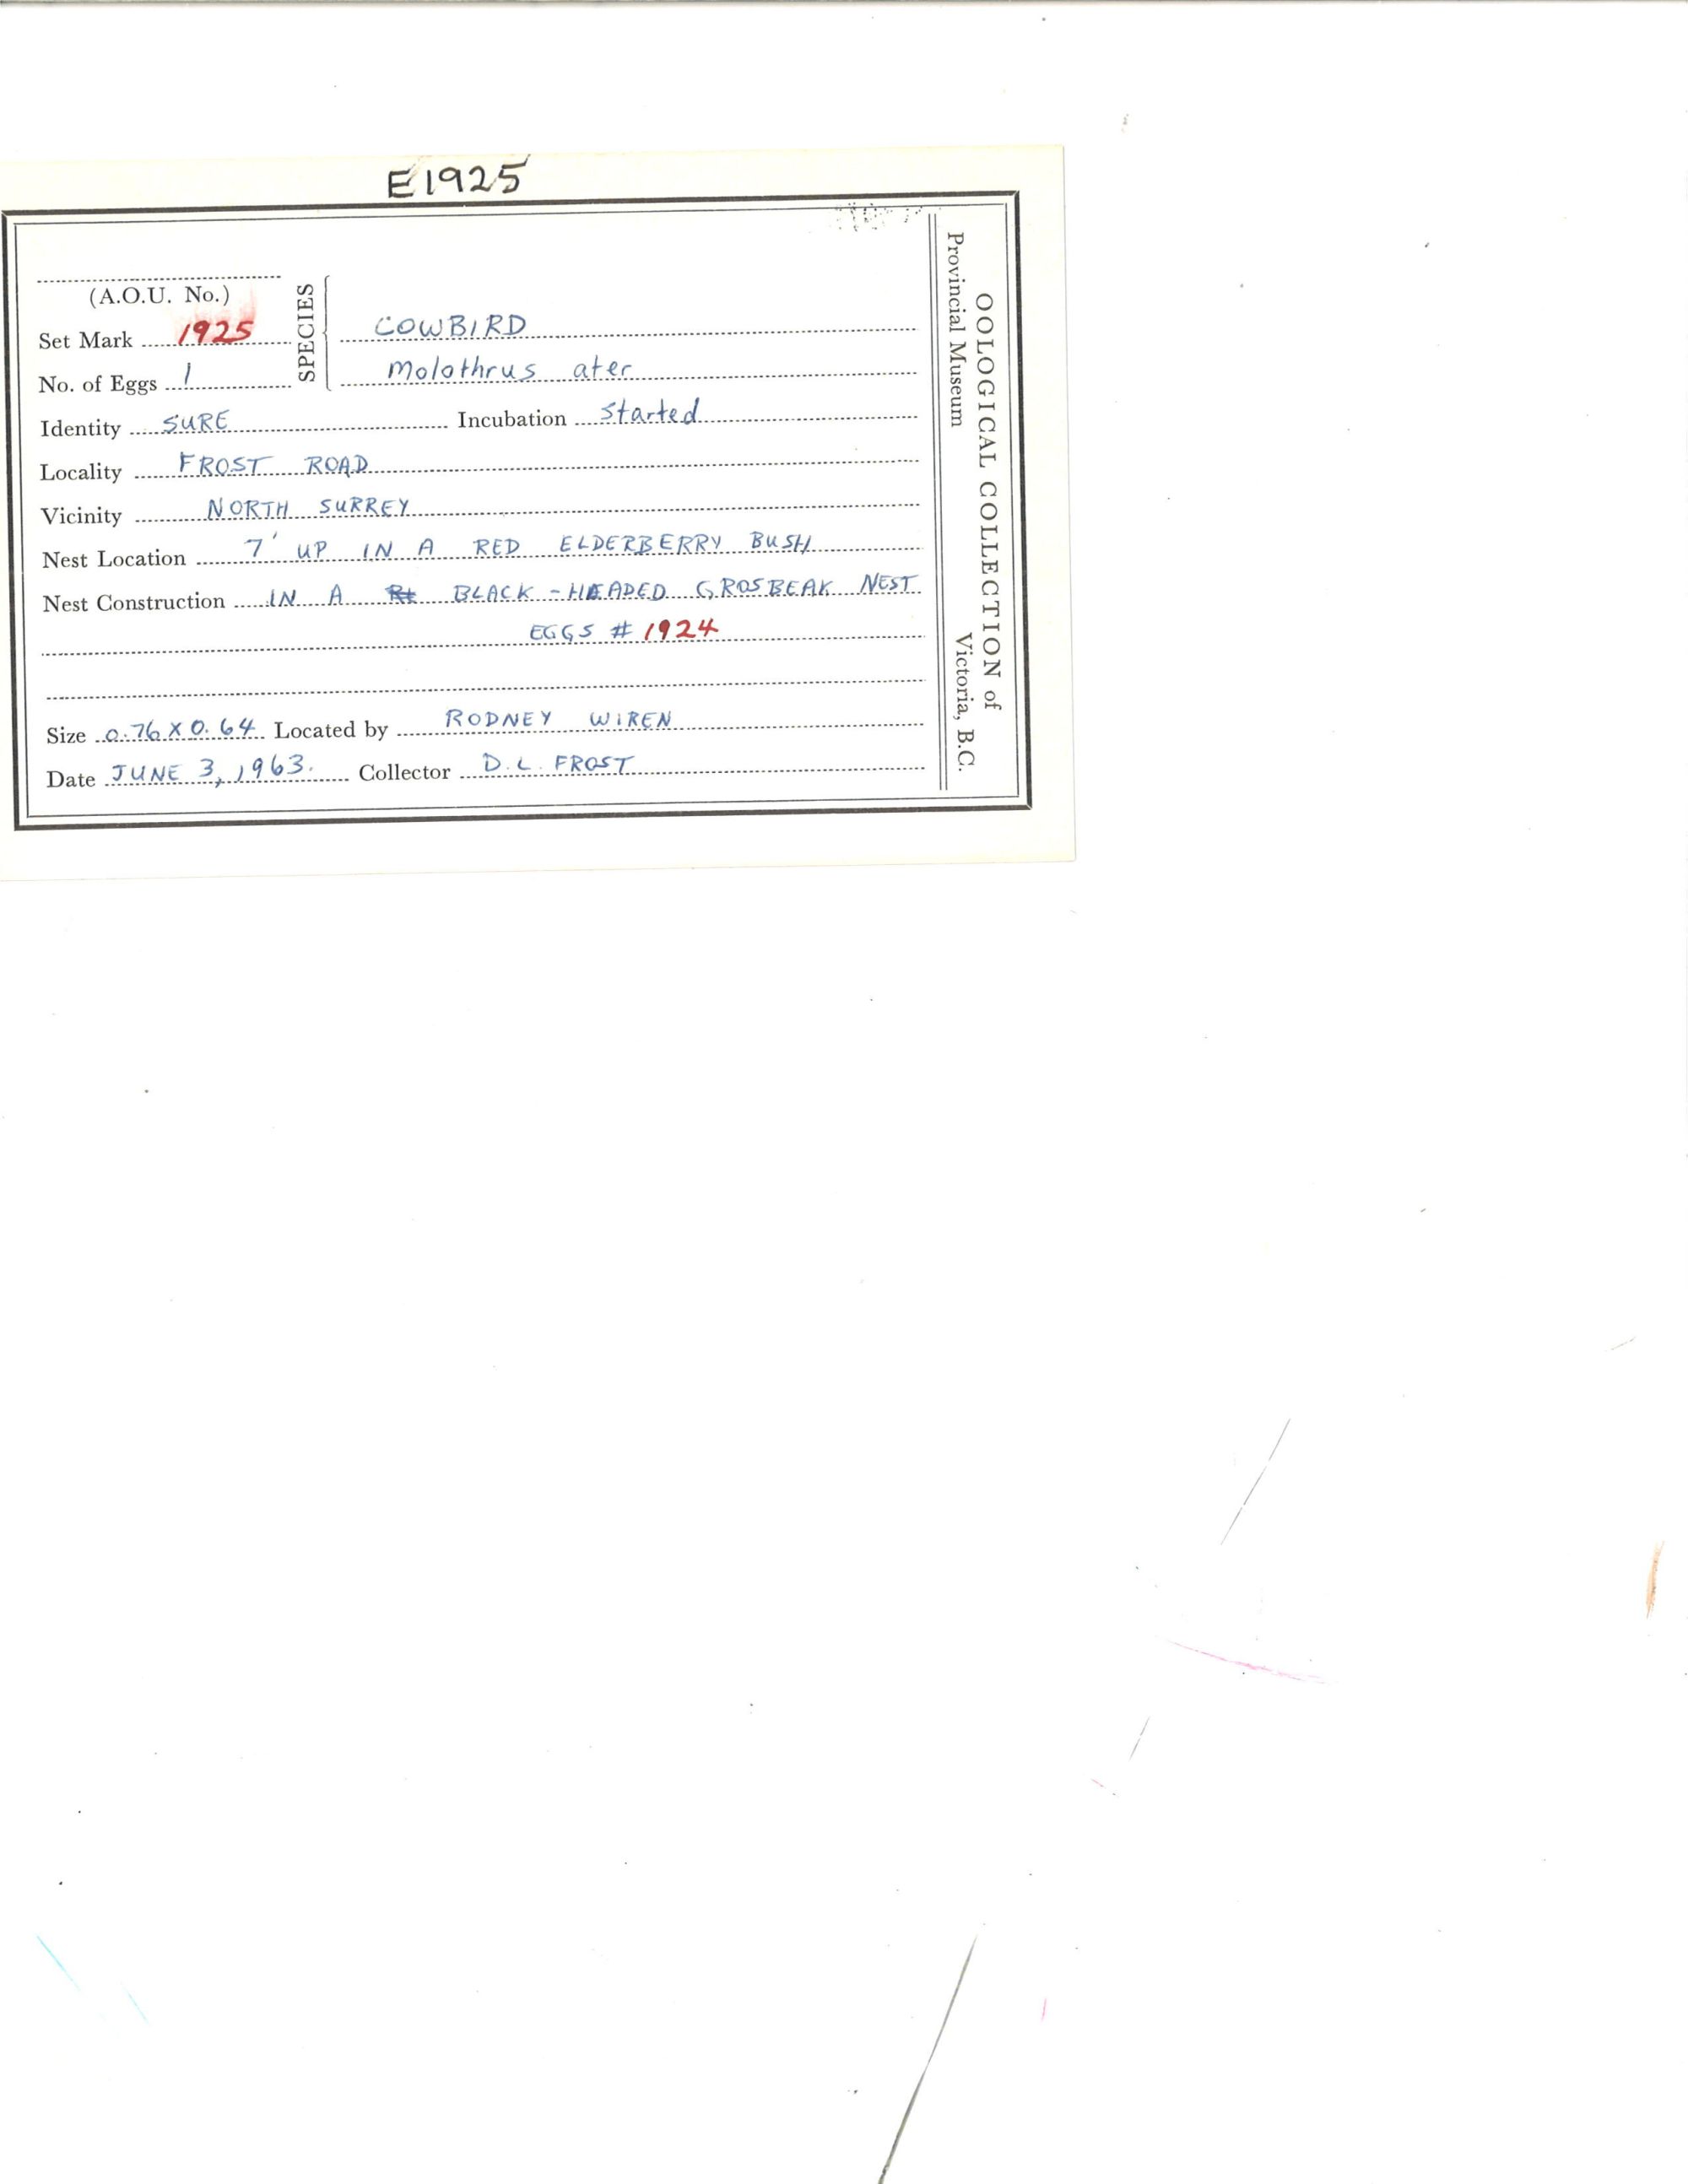 E1925
(A.O.U. No.)
Set Mark 1925
No. of Eggs 1
SPECIES
COWBIRD
Molothrus ater
Identity SURE Incubation Started
Locality FROST ROAD
Vicinity NORTH SURREY
Nest Location 7' UP IN A RED ELDERBERRY BUSH
Nest Construction IN A BLACK-HEADED GROSBEAK NEST
EGGS # 1924
Size 0.76 X 0.64 Located by RODNEY WIREN
Date JUNE 3, 1963. Collector D.L. FROST
OOLOGICAL COLLECTION of
Provincial Museum Victoria, B.C.